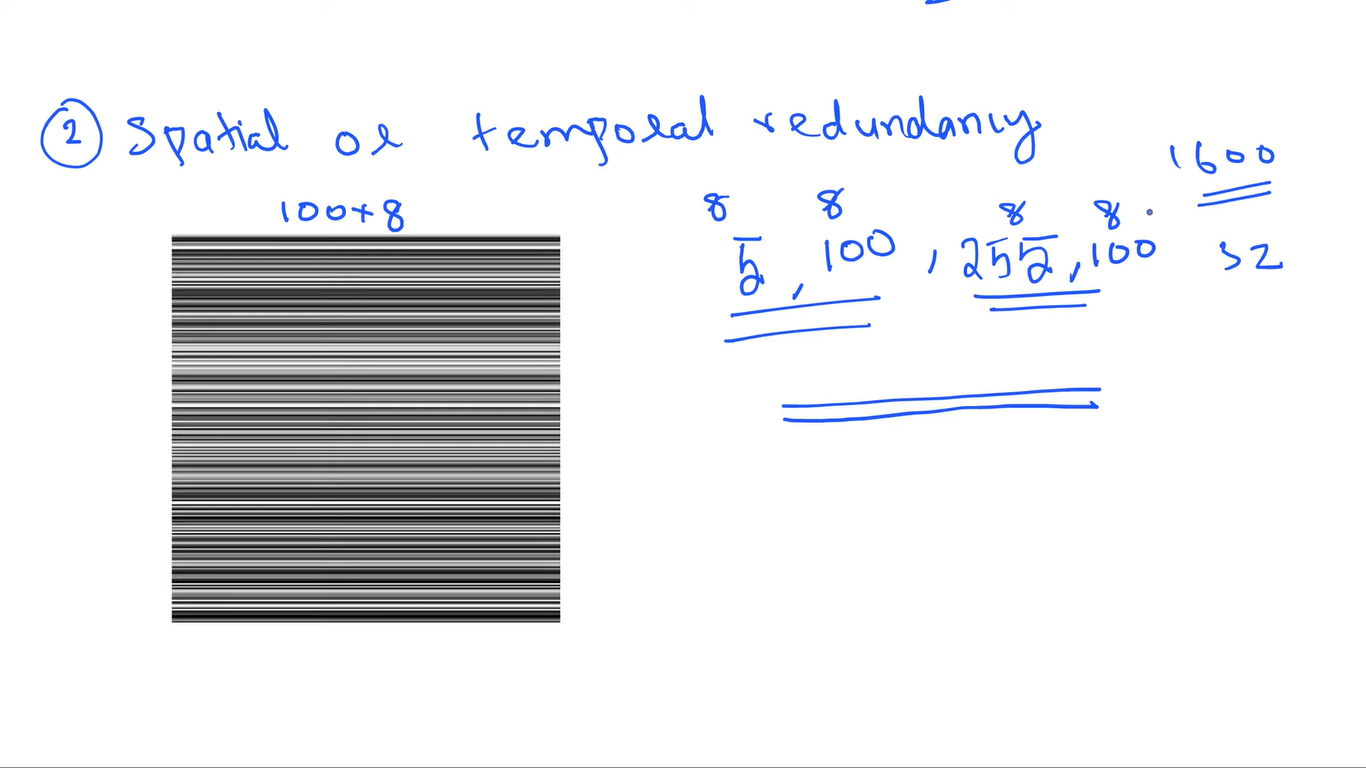 2 Spatial or temporal redundancy
1600
100+8
8 8 8 8
5, 100, 255, 100 32